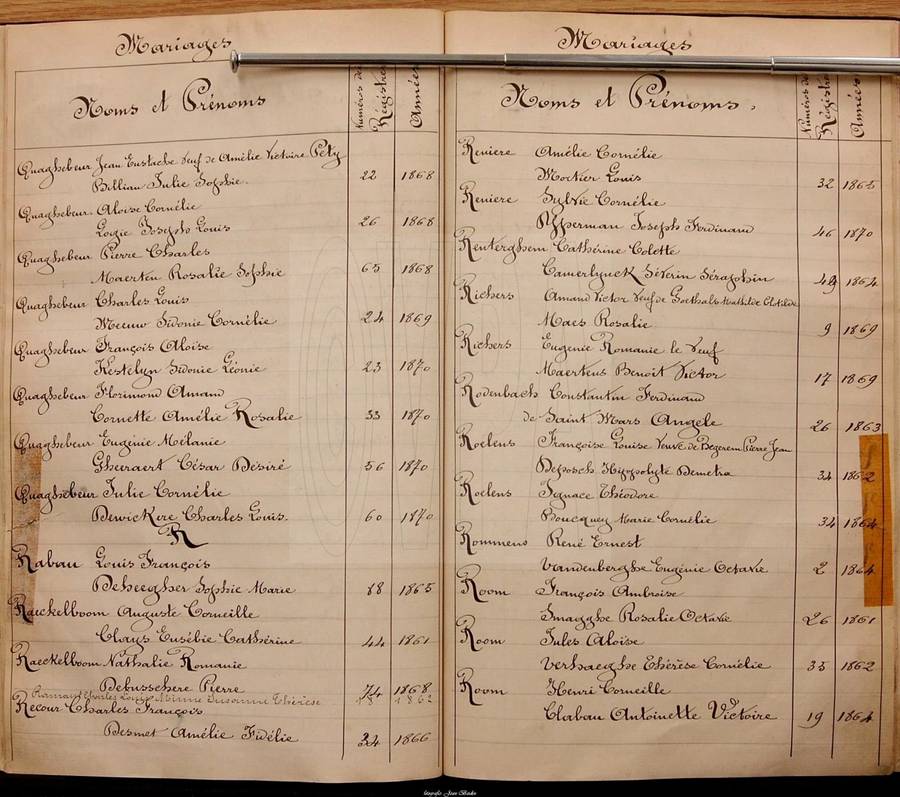 Mariages
Noms et Prénoms
Numéros de Régistre
Années
Quaghebeur Jean Eustache Veuf de Amélie Victoire Pety
Billiau Julie Sophie. 22 1868
Quaghebeur Aloise Cornélie
Logie Joseph Louis 26 1868
Quaghebeur Pierre Charles
Maerten Rosalie Sophie 65 1868
Quaghebeur Charles Louis
Meeuw Sidonie Cornélie 24 1869
Quaghebeur François Aloise
Kestelyn Sidonie Léonie 23 1870
Quaghebeur Florimond Amand
Cornette Amélie Rosalie 33 1870
Quaghebeur Eugénie Mélanie
Gheraert César Désiré 56 1870
Quaghebeur Julie Cornélie
Dewickere Charles Louis. 60 1870
R
Rabau Louis François
Deheegher Sophie Marie 18 1865
Raeckelboom Auguste Corneille
Clays Eusélie Cathérine 44 1861
Raeckelboom Nathalie Romanie
Debusschere Pierre 74 1868
Charles Louis Minne Susanne Thérèse 18 1862
Recour Charles François
Desmet Amélie Fidélie 34 1866
Mariages
Noms et Prénoms.
Numéros de Régistre
Années
Reniere Amélie Cornélie
Mortier Louis 32 1865
Reniere Sylvie Cornélie
Ypperman Joseph Ferdinand 46 1870
Renterghem Cathérine Colette
Camerlynck Séverin Séraphin 49 1864
Richers Amand Victor Veuf de Goethals Mathilde Clotilde
Maes Rosalie 9 1869
Richers Eugenie Romanie le Veuf
Maertens Benoit Victor 17 1869
Rodenbach Constantin Ferdinand
de Saint Mars Angèle 26 1863
Roelens Françoise Louise Veuve de Begerem Pierre Jean
Deposch Hippolyte Demetra 34 1862
Roelens Ignace Théodore
Boucquey Marie Cornélie 34 1864
Rommens René Ernest
Vandenberghe Eugénie Octavie 2 1864
Room François Ambroise
Smagghe Rosalie Octavie 26 1861
Room Jules Aloïse
Verhaeghe Thérèse Cornélie 35 1862
Room Henri Corneille
Clabau Antoinette Victoire 19 1864